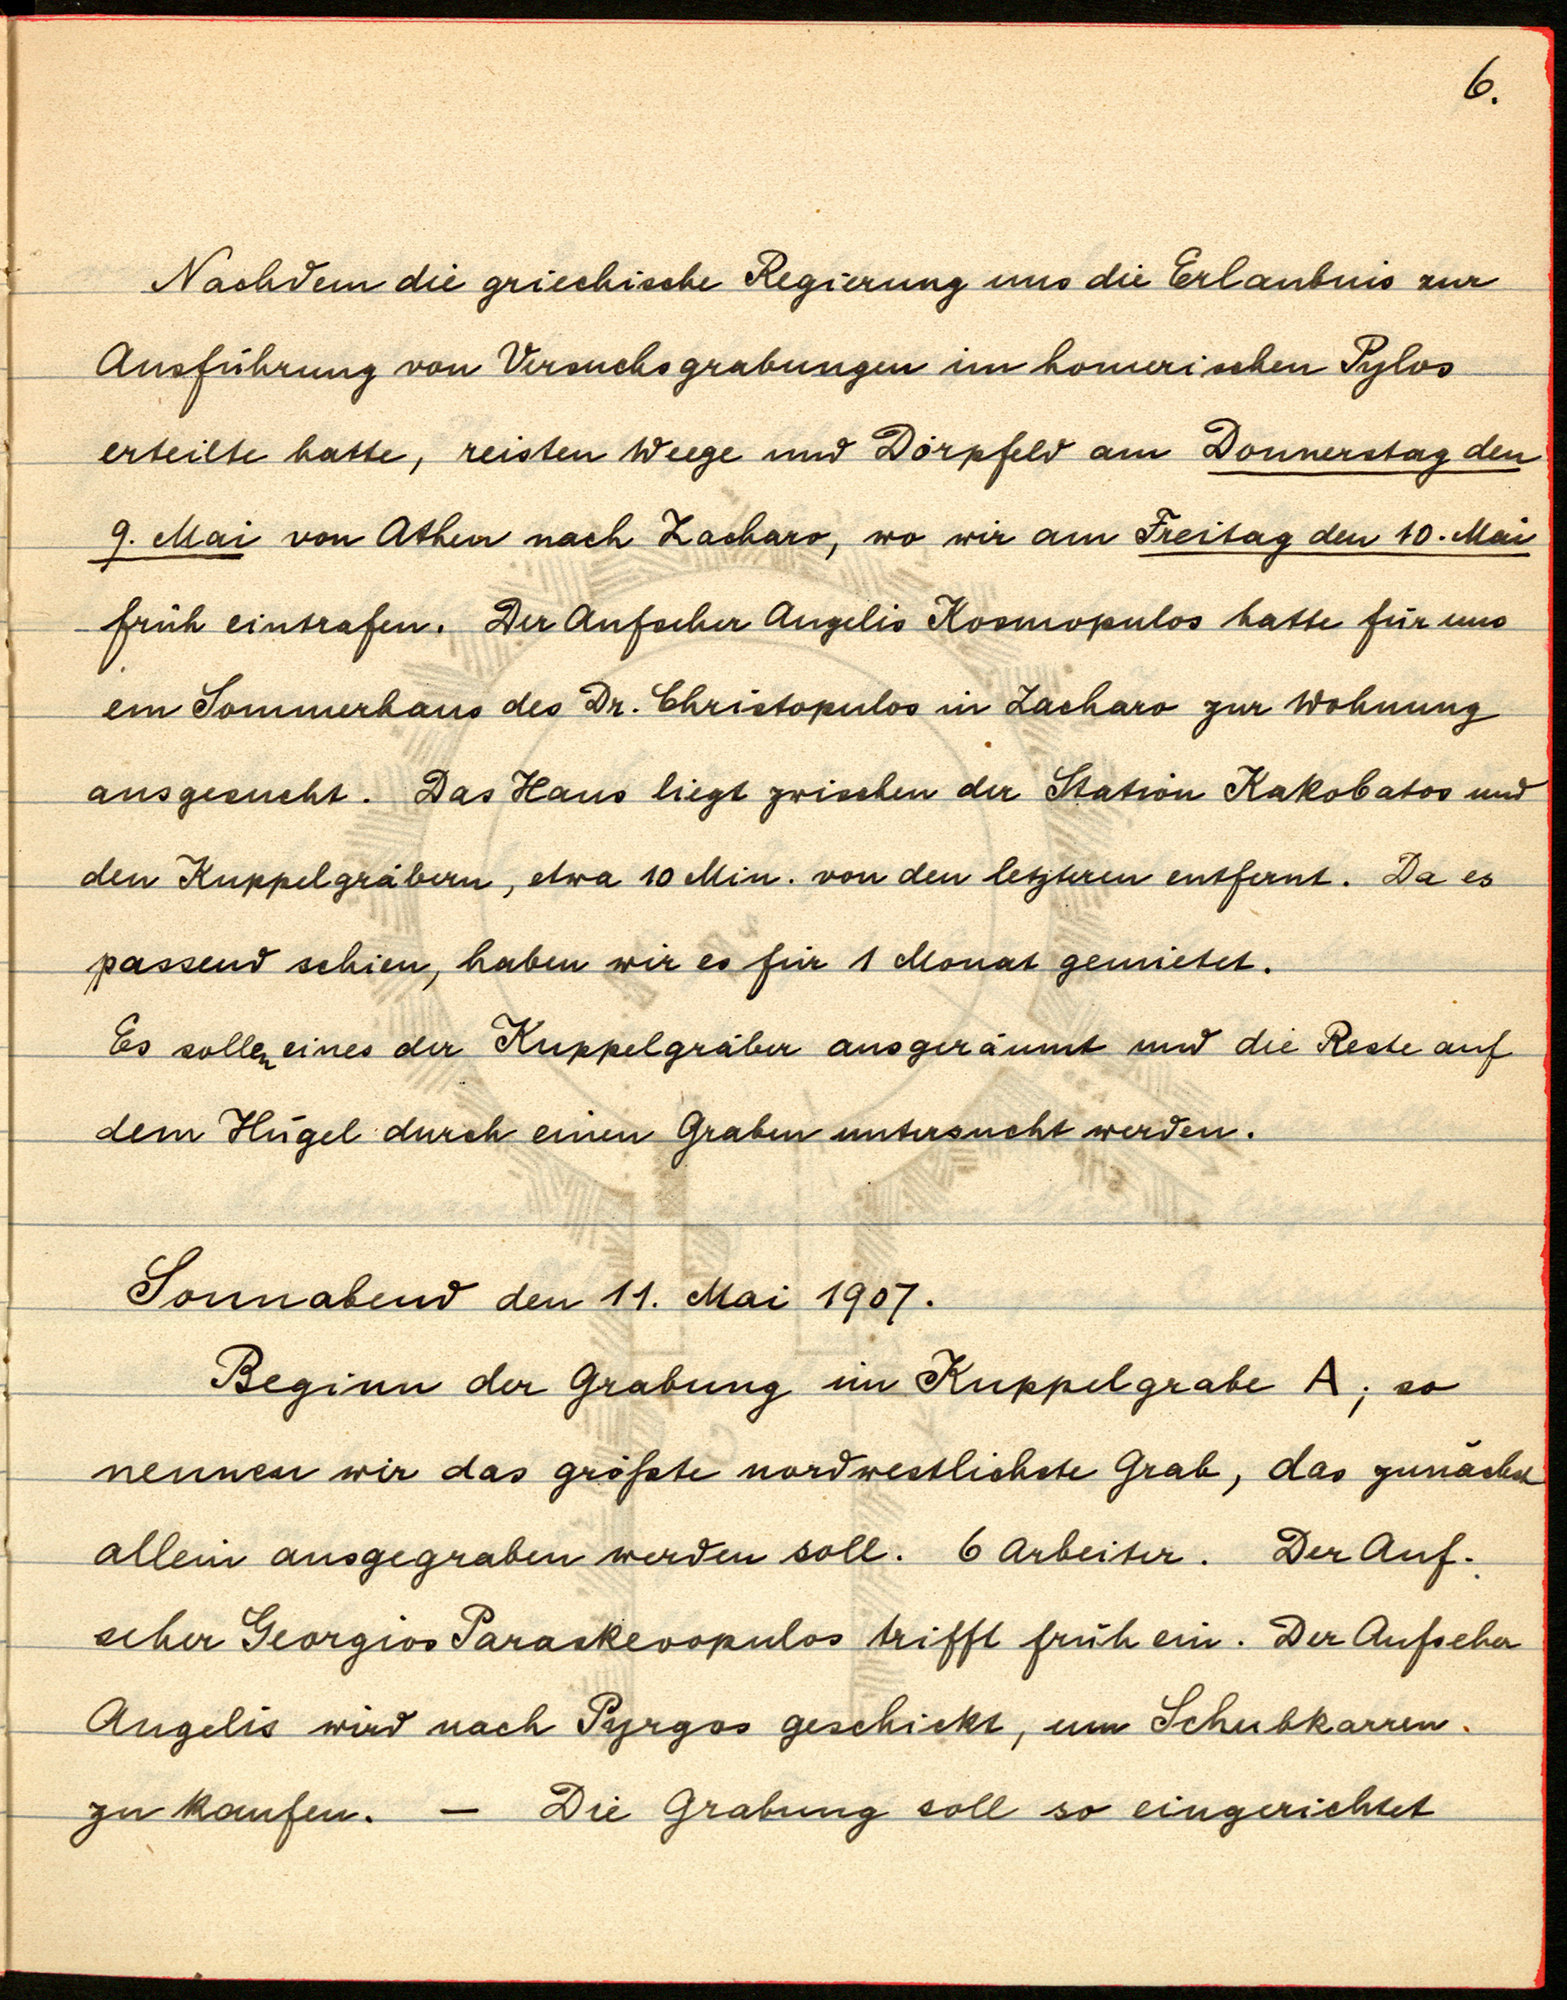 6.
Nachdem die griechische Regierung uns die Erlaubnis zur
Ausführung von Versuchsgrabungen im homerischen Pylos
erteilte hatte, reisten Weege und Dörpfeld am Donnerstag den
9. Mai von Athen nach Zacharo, wo wir am Freitag den 10. Mai
früh eintrafen. Der Aufseher Angelis Kosmopulos hatte für uns
ein Sommerhaus des Dr. Christopulos in Zacharo zur Wohnung
ausgesucht. Das Haus liegt zwischen der Station Kakobatos und
den Kuppelgräbern, etwa 10 Min. von den letzteren entfernt. Da es
passend schien, haben wir es für 1 Monat gemietet.
Es sollen eines der Kuppelgräber ausgeräumt und die Reste auf
dem Hügel durch einen Graben untersucht werden.
Sonnabend den 11. Mai 1907.
Beginn der Grabung im Kuppelgrabe A; so
nennen wir das größte nordwestlichste Grab, das zunächst
allein ausgegraben werden soll. 6 Arbeiter. Der Auf-
seher Georgios Paraskevopulos trifft früh ein. Der Aufseher
Angelis wird nach Pyrgos geschickt, um Schubkarren
zu kaufen. — Die Grabung soll so eingerichtet